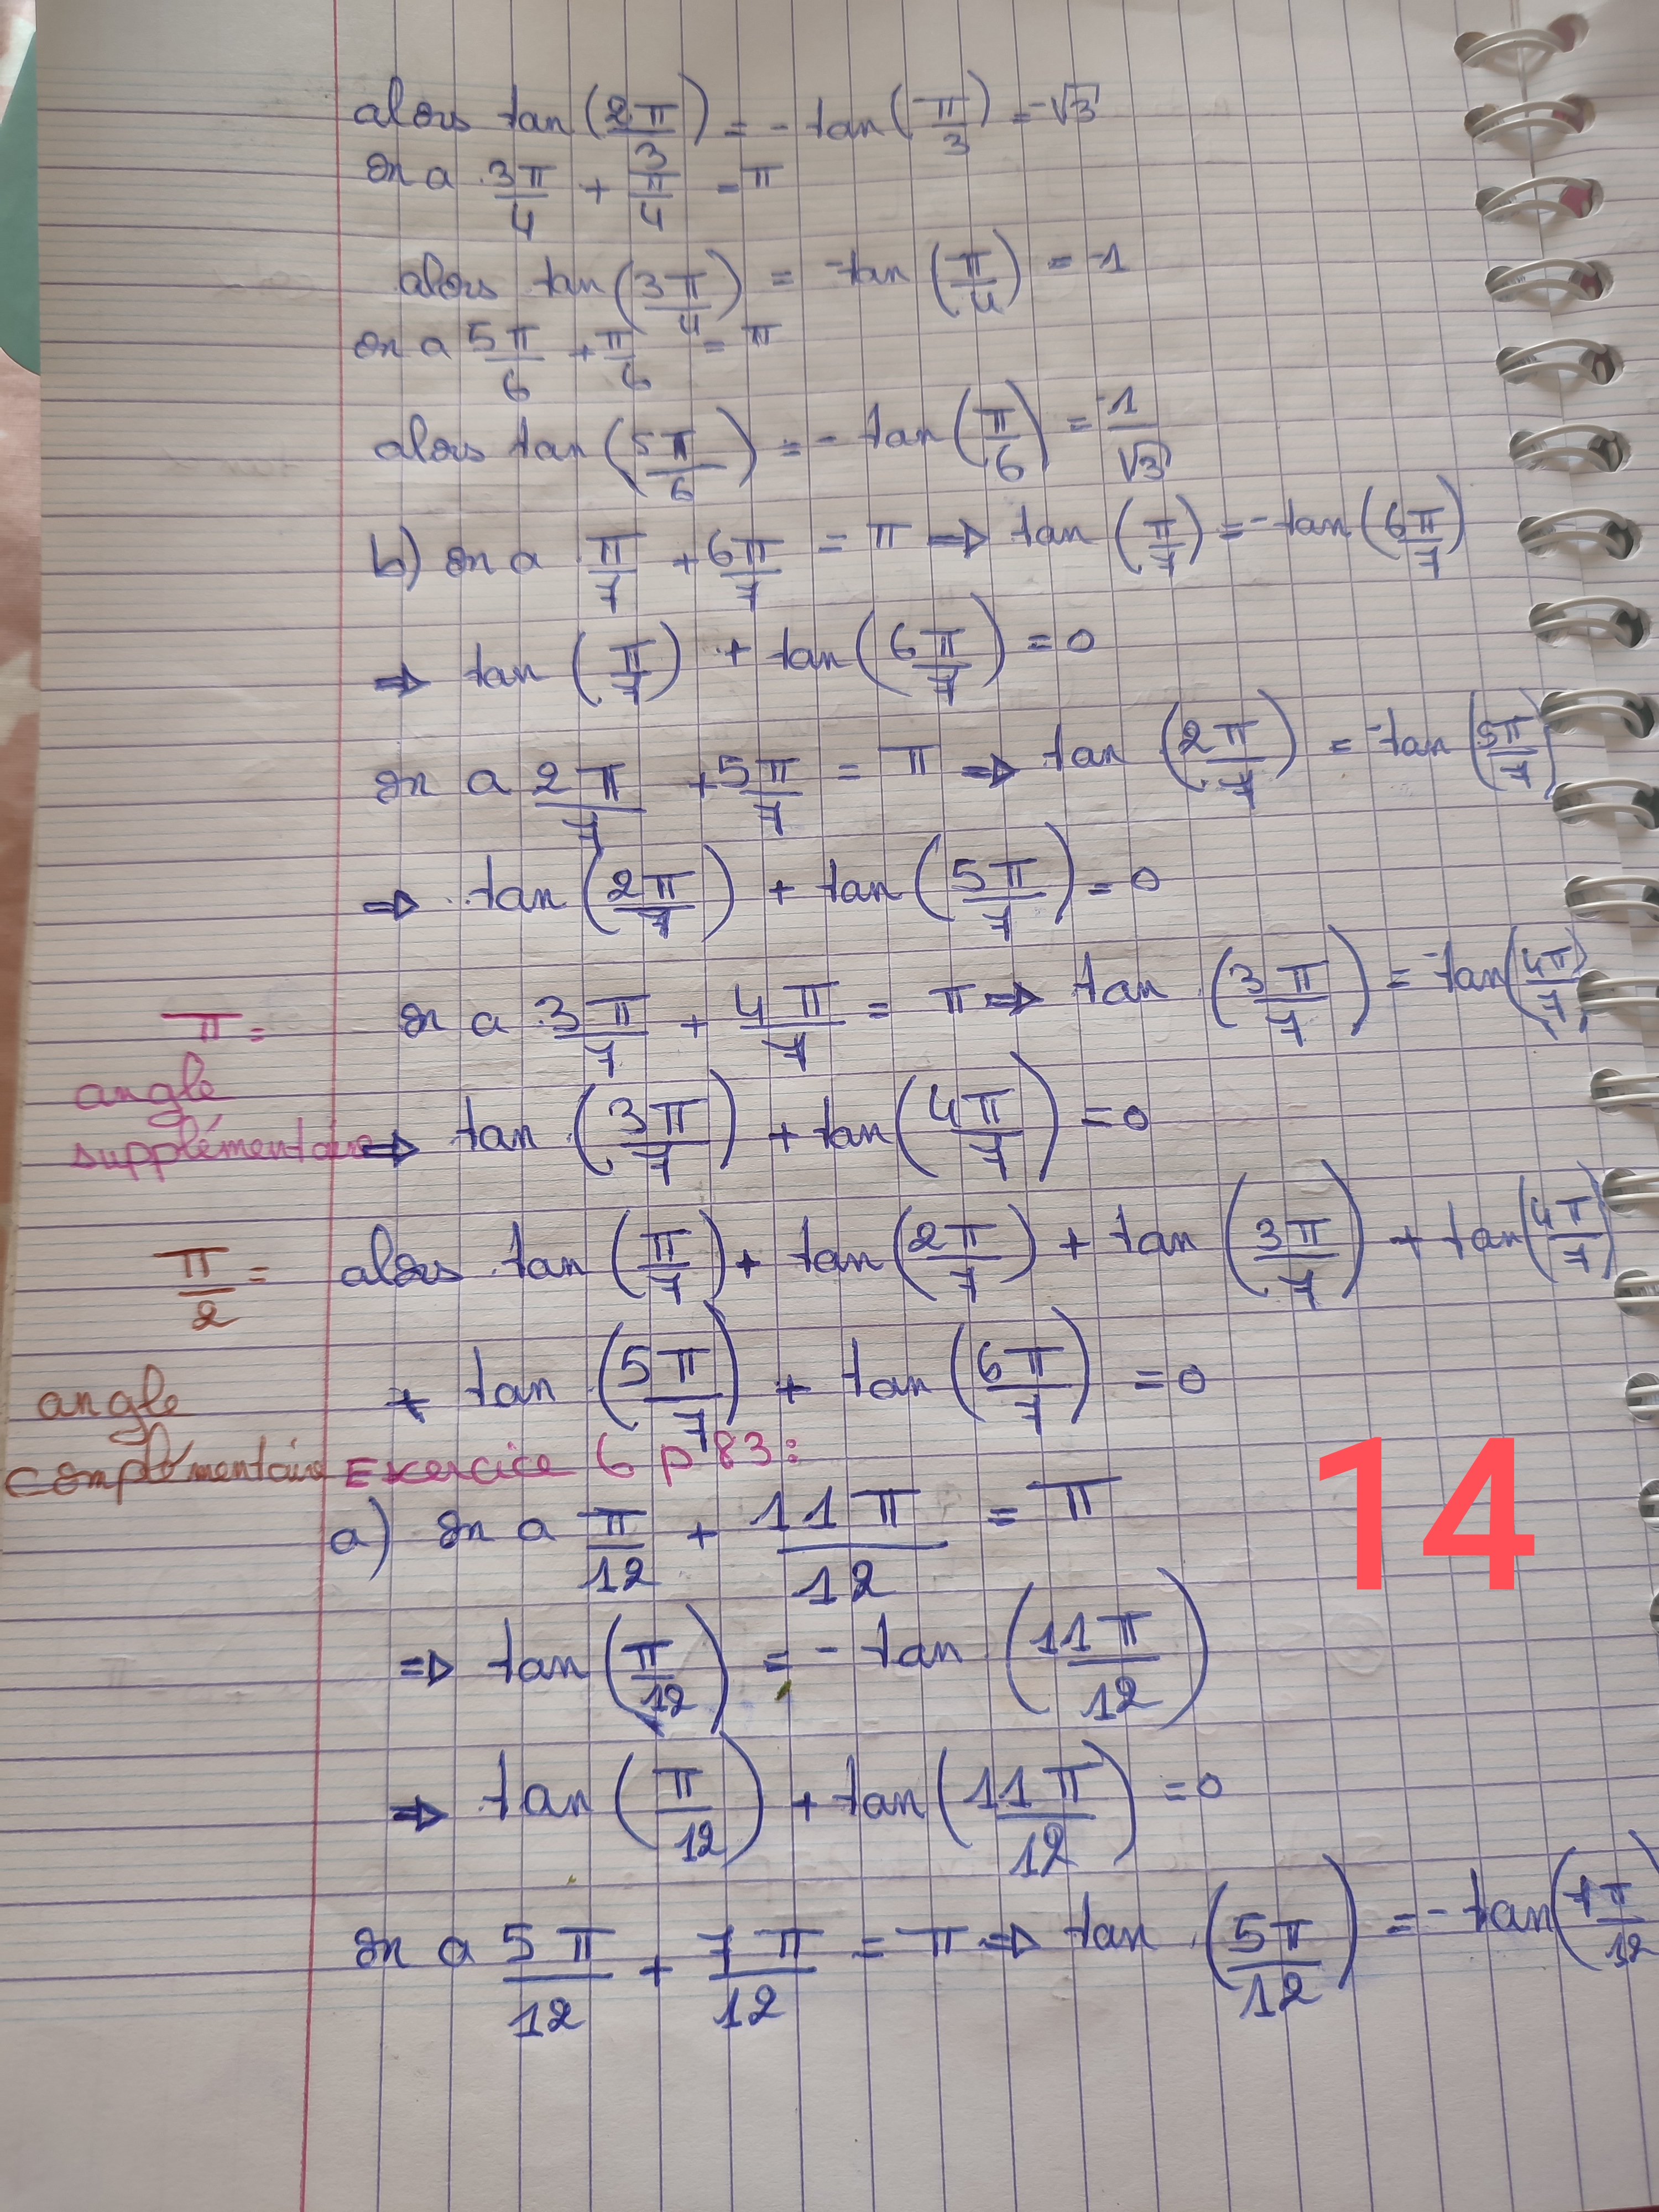 alors tan(2π/3) = - tan(π/3) = -√3
On a 3π/4 + π/4 = π
alors tan(3π/4) = -tan(π/4) = -1
on a 5π/6 + π/6 = π
alors tan(5π/6) = - tan(π/6) = -1/√3
b) on a π/7 + 6π/7 = π ⇒ tan(π/7) = -tan(6π/7)
⇒ tan(π/7) + tan(6π/7) = 0
On a 2π/7 + 5π/7 = π ⇒ tan(2π/7) = -tan(5π/7)
⇒ tan(2π/7) + tan(5π/7) = 0
π =
angle
supplémentaire
On a 3π/7 + 4π/7 = π ⇒ tan(3π/7) = -tan(4π/7)
⇒ tan(3π/7) + tan(4π/7) = 0
π/2 =
angle
complémentaire
alors tan(π/7) + tan(2π/7) + tan(3π/7) + tan(4π/7)
+ tan(5π/7) + tan(6π/7) = 0
Exercice 6 p 83 :
a) On a π/12 + 11π/12 = π
14
⇒ tan(π/12) = - tan(11π/12)
⇒ tan(π/12) + tan(11π/12) = 0
On a 5π/12 + 7π/12 = π ⇒ tan(5π/12) = - tan(7π/12